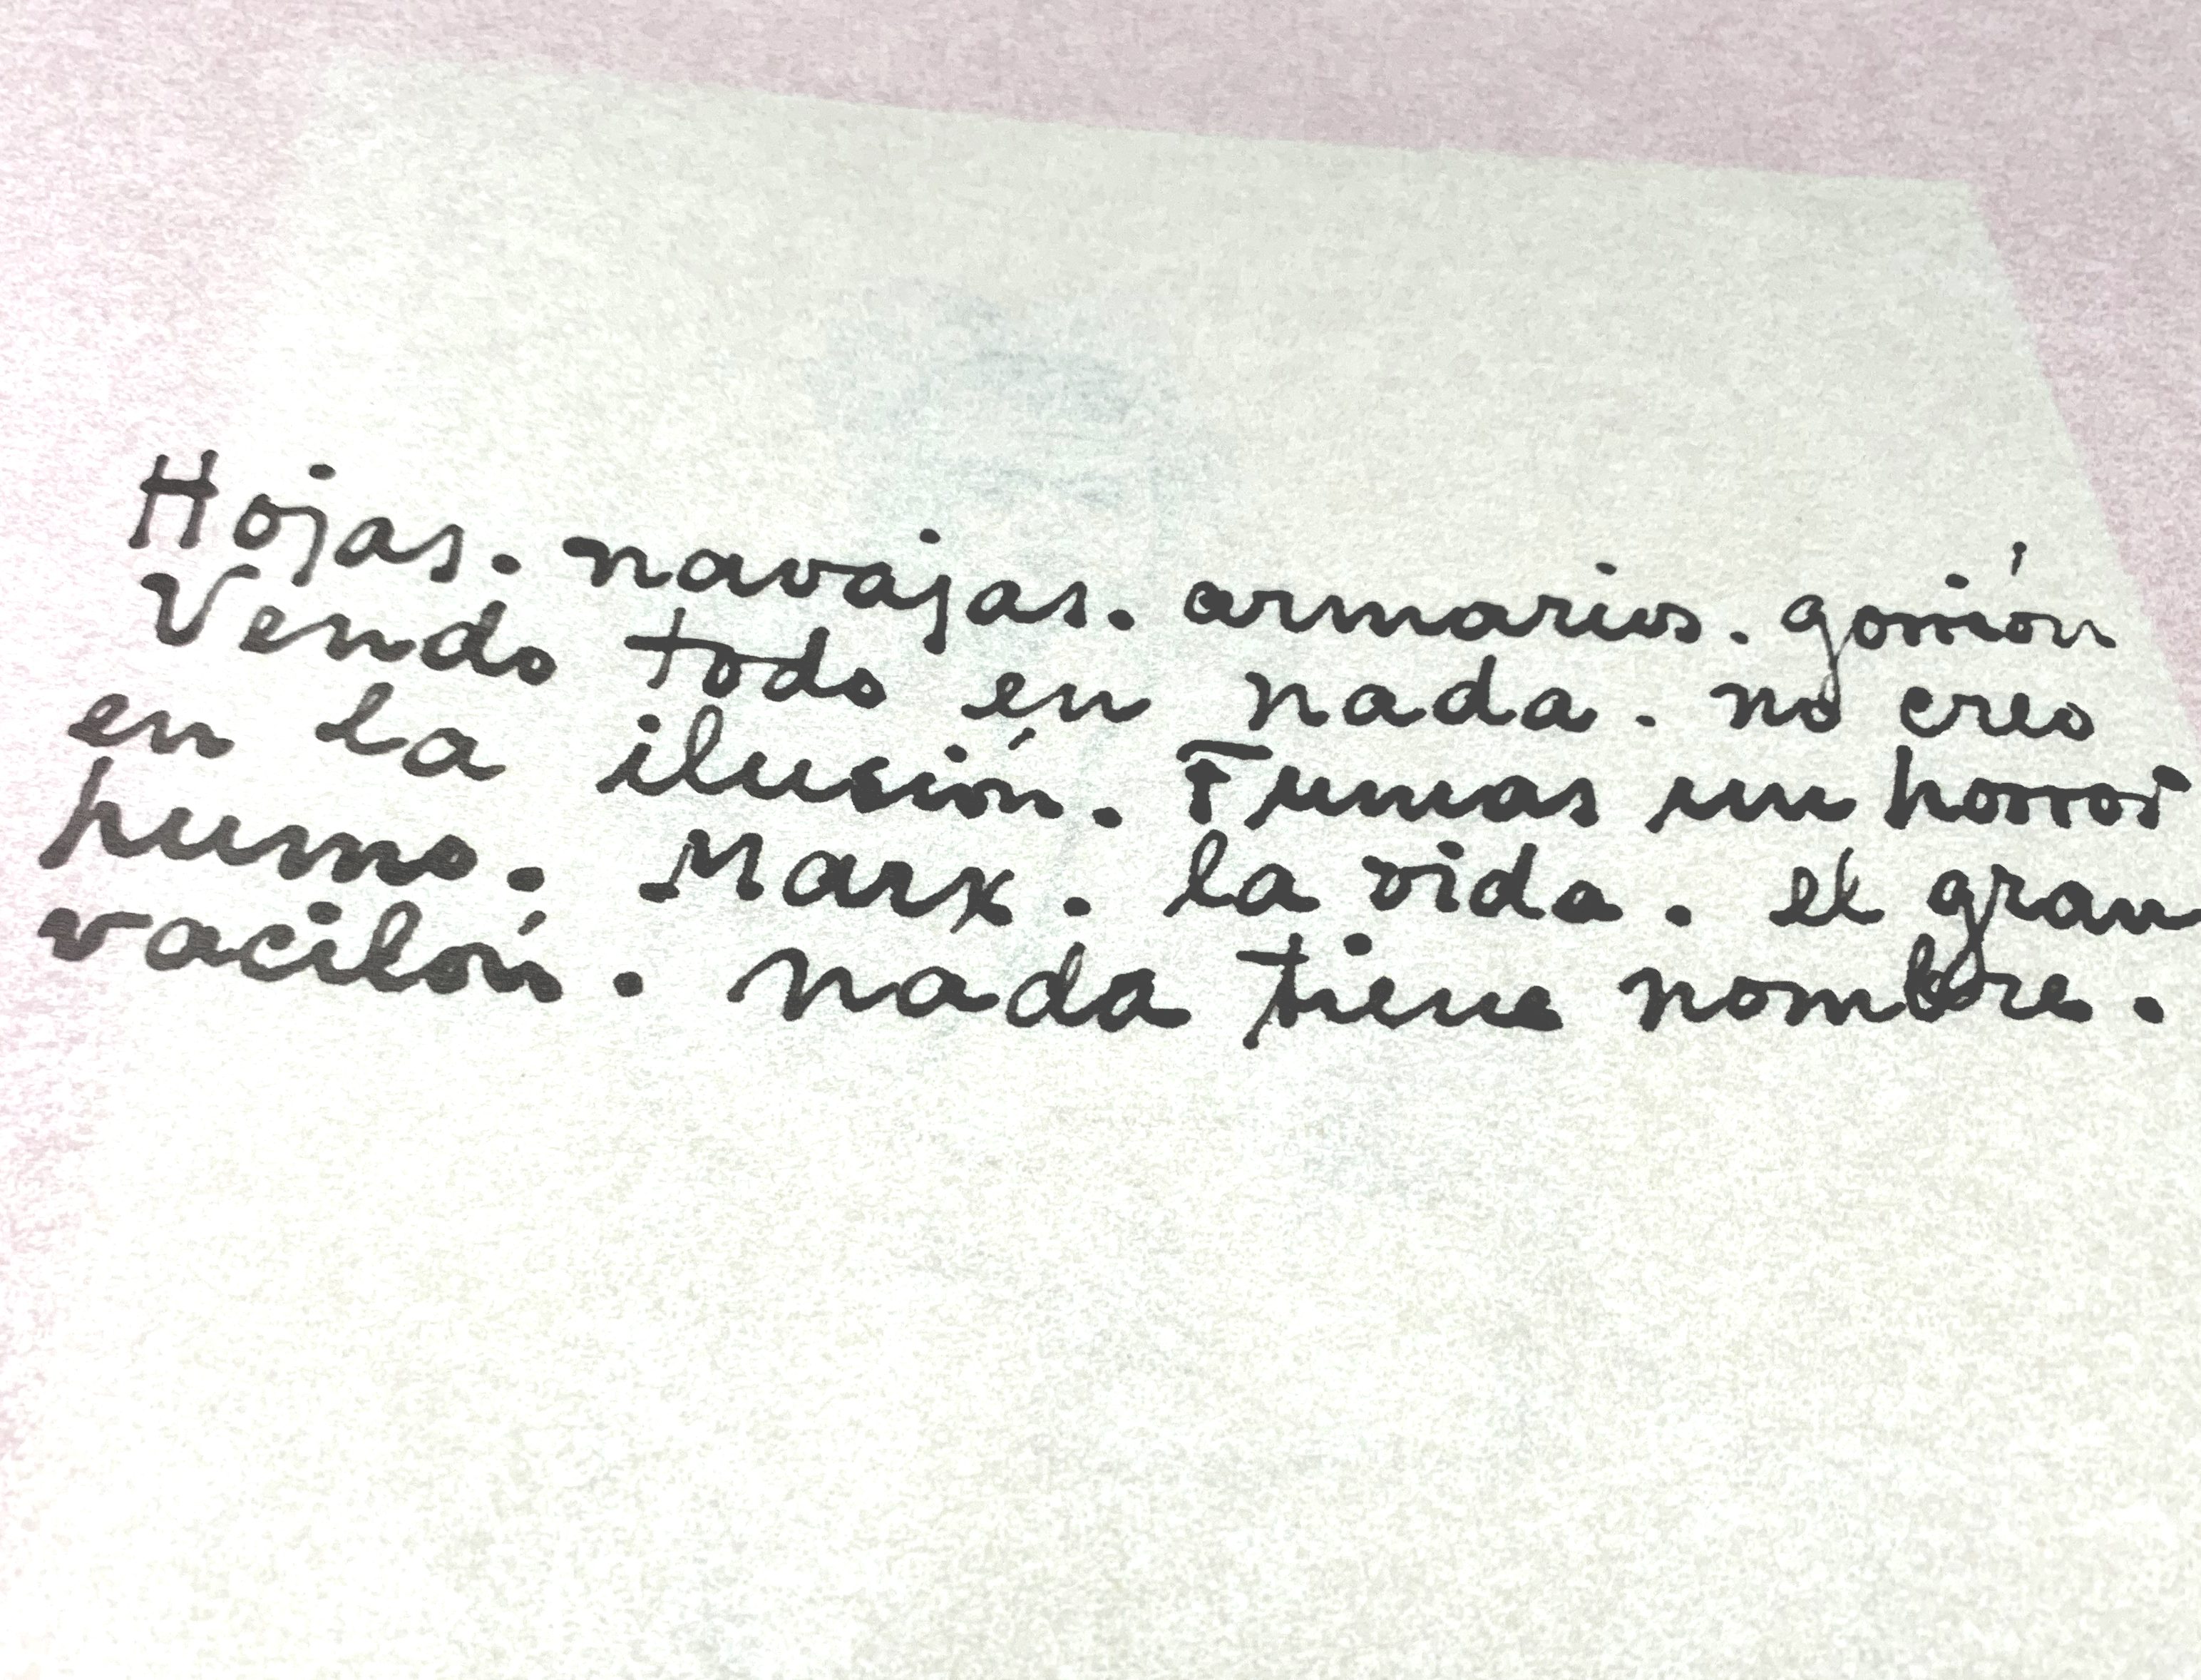 Hojas. navajas. armarios. gorrión
Vendo todo en nada. no creo
en la ilusión. Fumas un horror
humo. Marx. la vida. el gran
vacilón. nada tiene nombre.